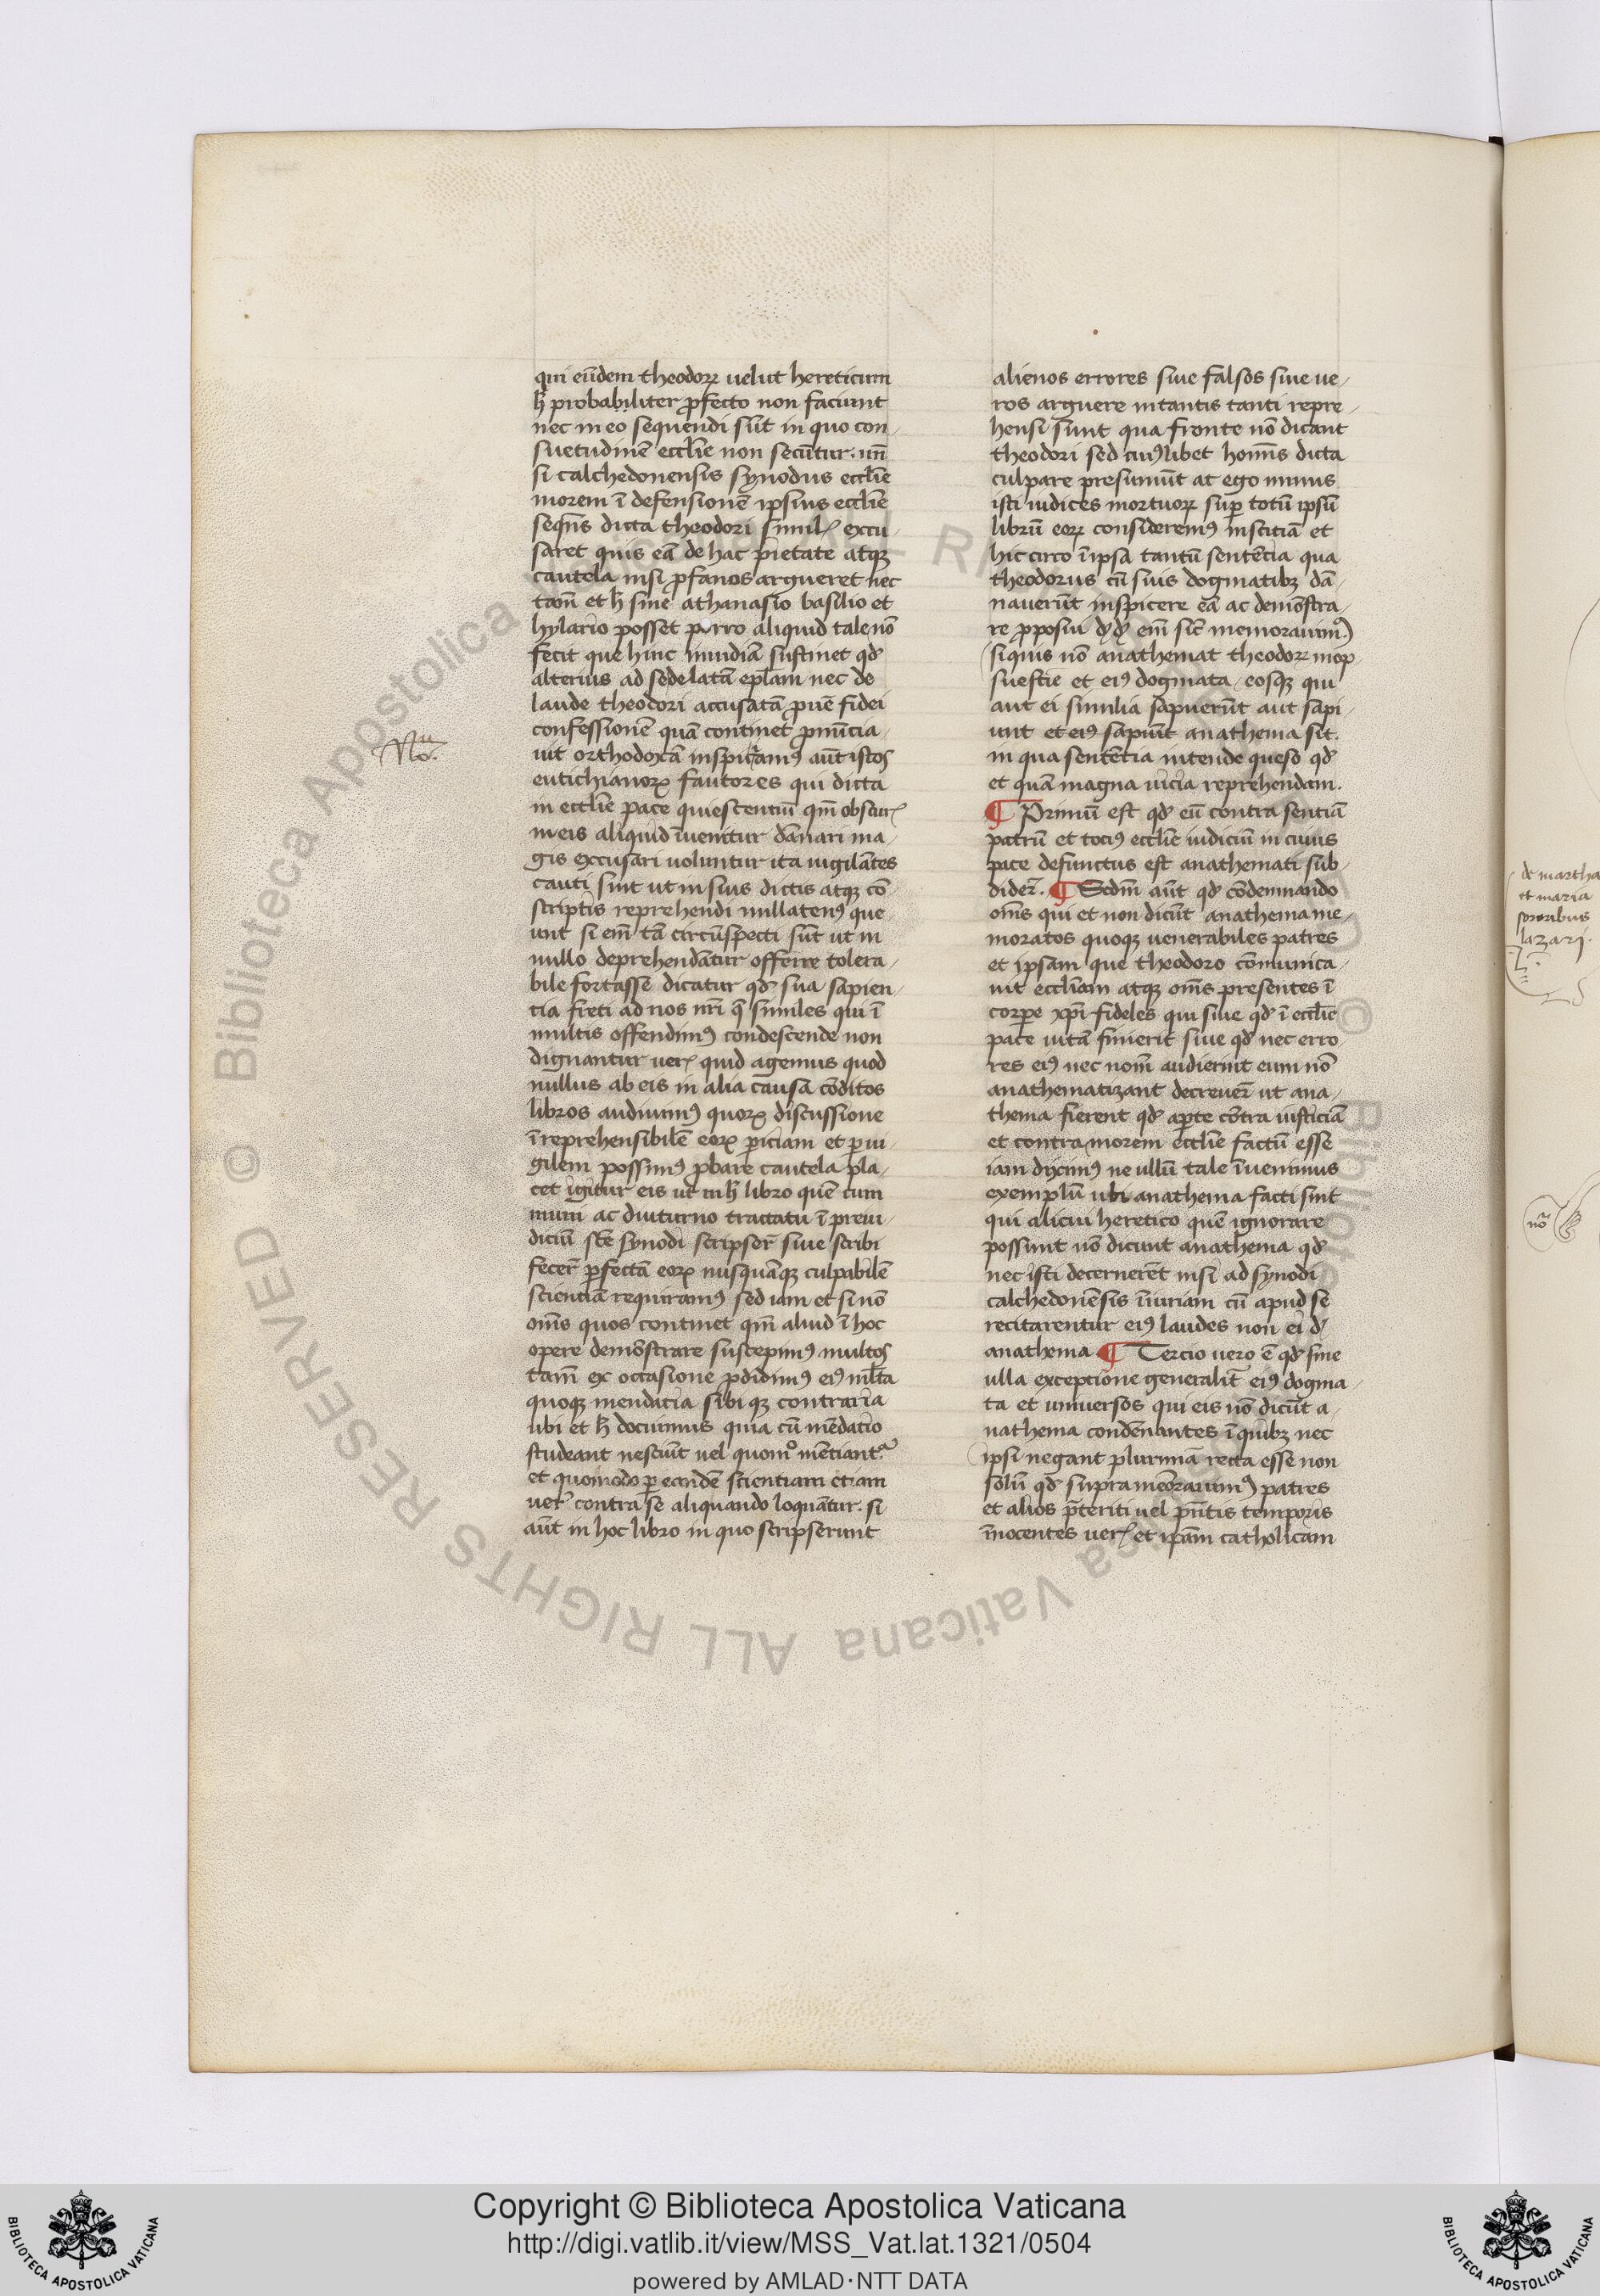 qui eūdem theodoꝝ uelut hereticum
ħ probabiliter ꝓfecto non faciunt
nec in eo sequendi sūt in quo con
suetudinē eccl̄ie non secūtur. un̄
si calchedonensis synodus eccl̄ie
morem ī defensionē ipsius eccl̄ie
seqn̄s dicta theodori simil̄r excu
saret quis eā de hac pietate atqꝫ
cautela nisi ꝓfanos argueret nec
tam̄ et ħ sine athanasio basilio et
hylario posset porro aliquid tale nō
fecit que hinc inuidiā sustinet qđ
alterius ad sedelatā ep̄lam nec de
laude theodori accusatā pue fidei
confessionē quā continet ꝓnūcia
uit orthodoxā inspiciamꝰ aūt istos
eutichianoꝝ fautores qui dicta
in eccl̄ie pace quiescentiū qm̄ obscur̄
in eis aliquid īuenitur dānari ma
gis excusari uoluntur ita uigilātes
cauti sint ut in suis dictis atqꝫ cō
scriptis reprehendi nullatenꝰ que
unt si em̄ tā circūspecti sūt ut in
nullo deprehendātur offerre tolera
bile fortasse dicatur qđ sua sapien
tia freti ad nos nr̄i qꝫ similes qui ī
multis offendimꝰ condescende non
dignantur uer̄ quid agemus quod
nullus ab eis in alia causa cōditos
libros audiuimꝰ quoꝝ discussione
īreprehensibilē eoꝝ ꝑiciam et ꝑui
gilem possimꝰ ꝓbare cautela pla
cet igitur eis ut in ħ libro quē cum
muni ac diuturno tractatu ī preiu
diciū sc̄e synodi scripser̄ siue scribi
fecer̄ ꝑfectā eoꝝ nusquāqꝫ culpabilē
scientiā requiramꝰ sed iam et si nō
om̄s quos continet qm̄ aliud ī hoc
opere demōstrare suscepimꝰ multos
tam̄ ex occasione ꝓdidimꝰ eiꝰ ml̄ta
quoqꝫ mendacia sibi qꝫ contraria
ubi et ħ docuimus quia cū mēdacio
studeant nesciūt uel quomᵒ mētiant᷑
et quomodo ꝑ eandē scientiam etiam
uer̄ contra se aliquando loquātur. si
aūt in hoc libro in quo scripserunt
No.
alienos errores siue falsos siue ue
ros arguere in tantis tanti repre
hensi sunt qua fronte nō dicant
theodori sed cuiꝰlibet hoīs dicta
culpare presumūt at ego minus
isti iudices mortuoꝝ suꝑ totū ipsū
librū eoꝝ consideremꝰ inscitiā et
hic circo ī ipsa tantū sentētia qua
theodorus cū suis dogmatibꝫ dā
nauerūt inspicere eā ac demōstra
re ꝓposui em̄ sic memorauimꝰ
si quis nō anathemat theodoꝝ mop
suestie et eiꝰ dogmata eosqꝫ qui
aut ei similia sapuerūt aut sapi
unt et eiꝰ sapiūt anathema sit.
in qua sentētia intende queso qđ
et quā magna uicia reprehendam.
¶ Primū est qđ eū contra sentiā
patrū et tociꝰ eccl̄ie iudiciū in cuius
pace defunctus est anathemati sub
dider̄. ¶ Scdm̄ aūt qđ cōdemnando
om̄s qui et non dicūt anathema me
moratos quoqꝫ uenerabiles patres
et ipsam que theodoro cōmunica
uit eccl̄iam atqꝫ om̄s presentes ī
corꝑe xp̄i fideles qui siue qđ ī eccl̄ie
pace uitā finierit siue qđ nec erro
res eiꝰ nec nom̄ audierint eum nō
anathematizant decreuer̄ ut ana
thema fierent qđ aꝑte cōtra iusticiā
et contra morem eccl̄ie factū esse
iam diximꝰ ne ullū tale īuenimus
exemplū ubi anathema facti sint
qui alicui heretico quē ignorare
possunt nō dicunt anathema qđ
nec isti decernerēt nisi ad synodi
calchedonēsis īiuriam cū apud se
recitarentur eiꝰ laudes non ei đ
anathema ¶ Tercio uero ē qđ sine
ulla exceptione generalit̄ eiꝰ dogma
ta et uniuersos qui eis nō dicūt a
nathema condēnantes ī quibꝫ nec
ipsi negant plurimā recta esse non
solū qđ supramēorauimꝰ patres
et alios p̄teriti uel pn̄tis temporis
īnocentes uer̄ et ip̄am catholicam
de martha
et maria
sororibus
lazari.
nō
Copyright © Biblioteca Apostolica Vaticana
http://digi.vatlib.it/view/MSS_Vat.lat.1321/0504
powered by AMLAD·NTT DATA
BIBLIOTECA APOSTOLICA VATICANA
BIBLIOTECA APOSTOLICA VATICANA
© Biblioteca Apostolica Vaticana ALL RIGHTS RESERVED